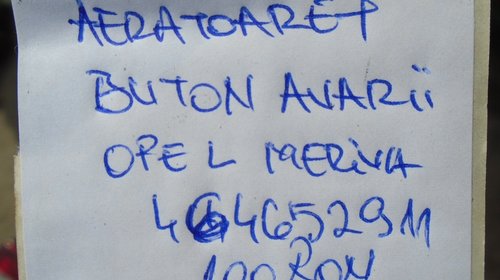 AERATOARE+
BUTON AVARII
OPEL MERIVA
464652911
100 RON